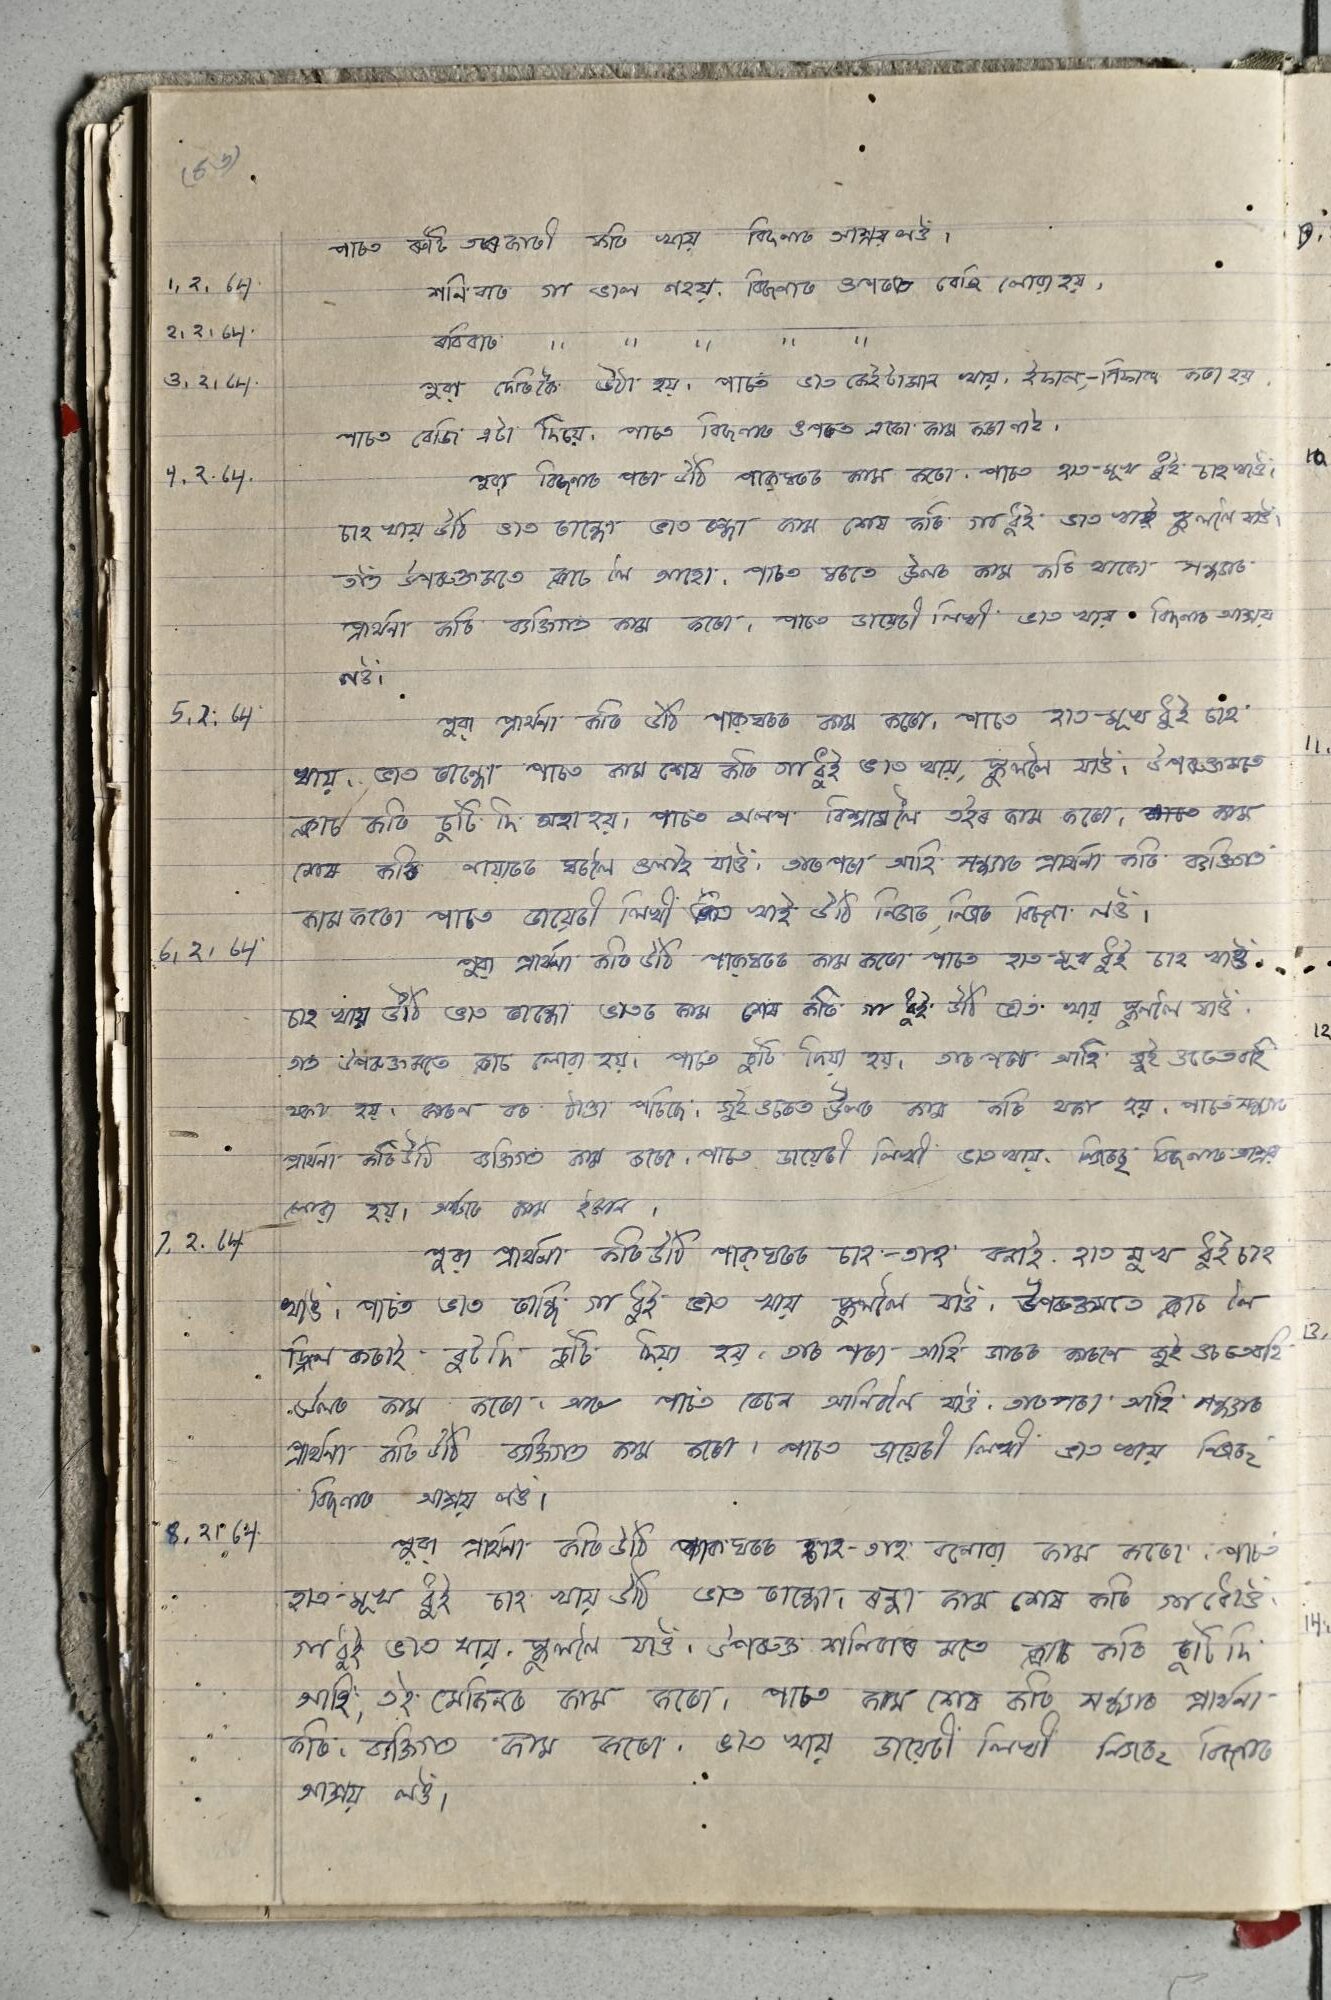 (৫৩)
পাচত ৰুটি তৰকাৰী কৰি খায় বিচনাত আশ্ৰয় লওঁ।
1. 2. 64. শনিবাৰ গা ভাল নহয়. বিচনাত ওপৰত বেছি লোৱা হয়.
2. 2. 64. ৰবিবাৰ " " " " "
3. 2. 64. পুৱা দেৰিকৈ উঠা হয়. পাচত ভাত কেইটামান খায়. কৰা হয়.
পাচত বেজি এটা দিয়ে. পাচত বিচনাৰ ওপৰত একো কাম কৰা নাই.
4. 2. 64. পুৱা বিচনাৰ পৰা উঠি পাকঘৰত কাম কৰো. পাচত হাত-মূখ ধুই চাহ খাওঁ.
চাহ খায় উঠি ভাত ৰান্ধো ভাত ৰন্ধা কাম শেষ কৰি গা ধুই ভাত খাই স্কুললৈ যাওঁ.
তাত উপৰুক্তমতে ক্লাচ লৈ আহো. পাচত ঘৰতে উলৰ কাম কৰি থাকো সন্ধ্যাত
প্ৰাৰ্থনা কৰি ব্যক্তিগত কাম কৰো. পাচত ডায়েৰী লিখী ভাত খায় বিচনাত আশ্ৰয়
লওঁ.
5. 2. 64. পুৱা প্ৰাৰ্থনা কৰি উঠি পাকঘৰত কাম কৰো. পাচত হাত-মূখ ধুই চাহ
খায়. ভাত ৰান্ধো পাচত কাম শেষ কৰি গা ধুই ভাত খায়, স্কুললৈ যাওঁ. উপৰুক্তমতে
ক্লাচ কৰি চুটি দি অহা হয়. পাচত অলপ বিশ্ৰামলৈ কাম কৰো. কাম
শেষ কৰি ঘৰলৈ ওলাই যাওঁ. তাৰ পৰা আহি সন্ধ্যাত প্ৰাৰ্থনা কৰি ব্যক্তিগত
কাম কৰো পাচত ডায়েৰী লিখী ভাত খাই উঠি নিজৰ নিজৰ বিচনা লওঁ.
6. 2. 64. পুৱা প্ৰাৰ্থনা কৰি উঠি পাকঘৰত কাম কৰো পাচত হাত-মূখ ধুই চাহ খাওঁ.
চাহ খায় উঠি ভাত ৰান্ধো ভাতৰ কাম শেষ কৰি গা ধুই উঠি ভাত খায় স্কুললৈ যাওঁ.
তাত উপৰুক্তমতে ক্লাচ লোৱা হয়. পাচত চুটি দিয়া হয়. তাৰ পৰা আহি জুই ওচৰতে বহি
থকা হয়. কাৰন বৰ ঠাণ্ডা পৰিছে. জুই ওচৰত উলৰ কাম কৰি থকা হয়. পাচত সন্ধ্যাত
প্ৰাৰ্থনা কৰি উঠি ব্যক্তিগত কাম কৰো. পাচত ডায়েৰী লিখী ভাত খায়. বিচনাত আশ্ৰয়
লোৱা হয়. কাম ইমান.
7. 2. 64 পুৱা প্ৰাৰ্থনা কৰি উঠি পাকঘৰত চাহ-তাহ বনাই. হাত মুখ ধুই চাহ
খাওঁ. পাচত ভাত ৰান্ধি গা ধুই ভাত খায় স্কুললৈ যাওঁ. উপৰুক্তমতে ক্লাচ লৈ
ড্ৰিল কৰাই বুট দি চুটি দিয়া হয়. তাৰ পৰা আহি জাৰৰ কাৰণে জুই ওচৰত বহি
উলৰ কাম কৰো. পাচত আনিবলৈ যাওঁ. তাৰ পৰা আহি সন্ধ্যাত
প্ৰাৰ্থনা কৰি উঠি ব্যক্তিগত কাম কৰো. পাচত ডায়েৰী লিখী ভাত খায়
বিচনাত আশ্ৰয় লওঁ.
8. 2. 64. পুৱা প্ৰাৰ্থনা কৰি উঠি পাকঘৰত চাহ-তাহ বনোৱা কাম কৰো. পাচত
হাত-মূখ ধুই চাহ খায় উঠি ভাত ৰান্ধো. ৰন্ধা কাম শেষ কৰি গা ধোওঁ.
গা ধুই ভাত খায়. স্কুললৈ যাওঁ. উপৰুক্ত শনিবাৰ মতে ক্লাচ কৰি চুটি দি
আহি, মেচিনৰ কাম কৰো. পাচত কাম শেষ কৰি সন্ধ্যাত প্ৰাৰ্থনা
কৰি. ব্যক্তিগত কাম কৰো. ভাত খায় ডায়েৰী লিখী বিচনাত
আশ্ৰয় লওঁ.
9.
10
11.
12
13.
14.